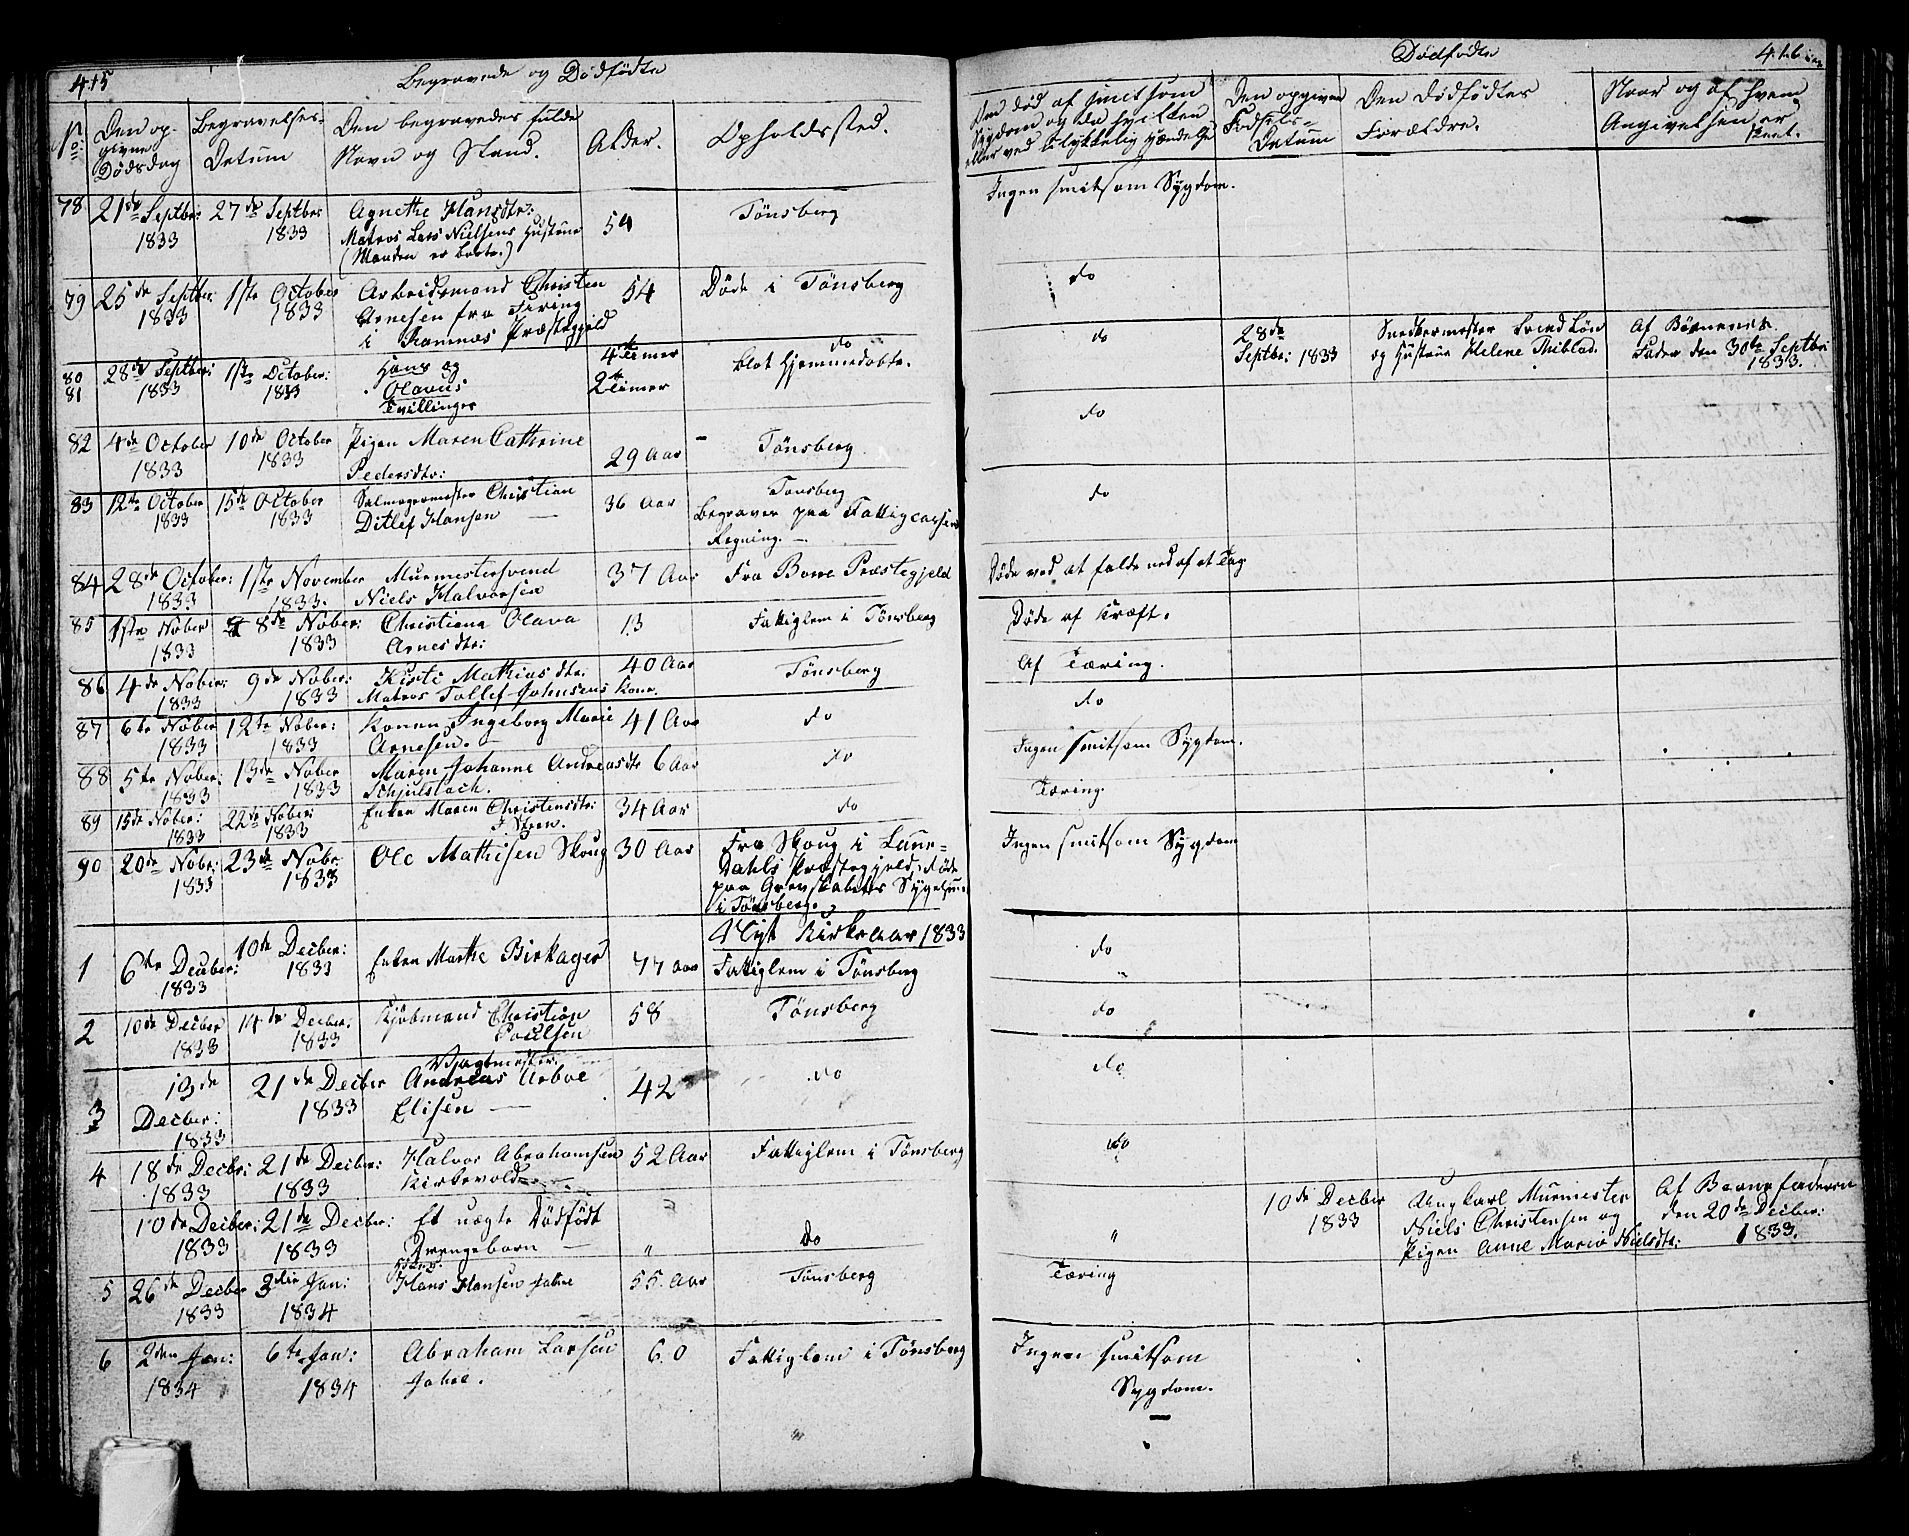 415
Begravede og Dødfødte
No:
Den op-
givne
Dødsdag
Begravelses-
Datum
Den begravedes fulde
Navn og Stand.
Alder.
Opholdssted.
78 21de Septbr: 1833 27de Septbr 1833 Agnethe Hansdtr: 54 Tønsberg
Matros Lars Nielsens Hustrue
(Manden er borte.)
79 25de Septbr: 1833 1ste October 1833 Arbeidsmand Christen 54 Døde i Tønsberg
Arnesen fra
i Ramnæs Præstegjeld
80 28de Septbr: 1833 1ste October: 1833 Hans og 4 Timer do
81 Olavus 2 Timer blot Hjemmedøbte.
Tvillinger
82 4de October 1833 10de October 1833 Pigen Maren Cathrine 29 Aar Tønsberg
Pedersdtr:
83 12te October 1833 15de October 1833 Salmagermester Christian 36 Aar Tønsberg
Ditlef Hansen — Begraves paa Fattigcassens
Regning. —
84 28de October: 1833 1ste November 1833. Murmestersvend 37 Aar Fra Præstegjeld
Niels Halvorsen
85 1ste Nober 1833 8de Nober: 1833 Christiana Olava 13 Fattiglem i Tønsberg
Arnesdtr:
86 4de Nober: 1833 9de Nober: 1833 Kirsti Mathiasdtr. 40 Aar Tønsberg
Matros Tollef Johnsens Kone.
87 6te Nober 1833 12te Nober: 1833 Konen Ingeborg Marie 41 Aar do
Arnesen.
88 5te Nober: 1833 13de Nober 1833 Maren Johanne Andreasdtr 6 Aar do
Schjulstoch.
89 15de Nober: 1833 22de Nober: 1833 Enken Maren Christensdtr: 34 Aar do
90 20de Nobr: 1833 23de Nobr 1833 Ole Mathisen Skoug 30 Aar Fra Skoug i Laur-
Dahls Præstegjeld, døde
paa Grevskabets Sygehuus
i Tønsberg.
Nyt Kirkeaar 1833
1 6te Decber: 1833 10de Decber: 1833 Enken Marthe Birkager 77 Aar Fattiglem i Tønsberg
2 10de Decber 1833 14de Decber: 1833 Kjøbmand Christian 58 Tønsberg
Poulsen
3 13de Decber: 1833 21de Decber 1833 Vagtmester. 42 do
Andreas Aaboe
Elisen —
4 18de Decbr: 1833 21de Decber: 1833 Halvor Abrahamsen 52 Aar Fattiglem i Tønsberg
Kirkevold
10de Decber: 1833 21de Decber: 1833 Et uægte Dødfødt " Do
Drengebarn —
5 26de Decber 1833 3die Jan: 1834 Hans Hansen Jahre 55. Aar Tønsberg
6 2den Jan: 1834 6te Jan: 1834 Abraham Larsen 60 Fattiglem i Tønsberg
Jahre.
Dødfødte
416
Om død af smitsom
Sygdom og da hvilken
eller ved ulykkelig Hændelse
Den opgivne
Fødsels-
Datum
Den Dødfødtes
Forældre.
Naar og af hvem
Angivelsen er
skeet.
Ingen smitsom Sygdom.
do
do 28de Septbr: 1833 Snedkermester Svend Løn Af Børnenes
og Hustrue Helene Thiblad. Fader den 30te Septbr: 1833.
do
do
Døde ved at falde ned af et Tag
Døde af Kræft.
Af Tæring.
do
Ingen smitsom Sygdom.
Tæring.
Ingen smitsom Sygdom
do
do
do
do
" 10de Decber 1833 Ungkarl Murmester Af Barnefaderen
Niels Christensen og den 20de Decber:
Pigen Anne Marie Nielsdtr: 1833.
Tæring
Ingen smitsom
Sygdom.